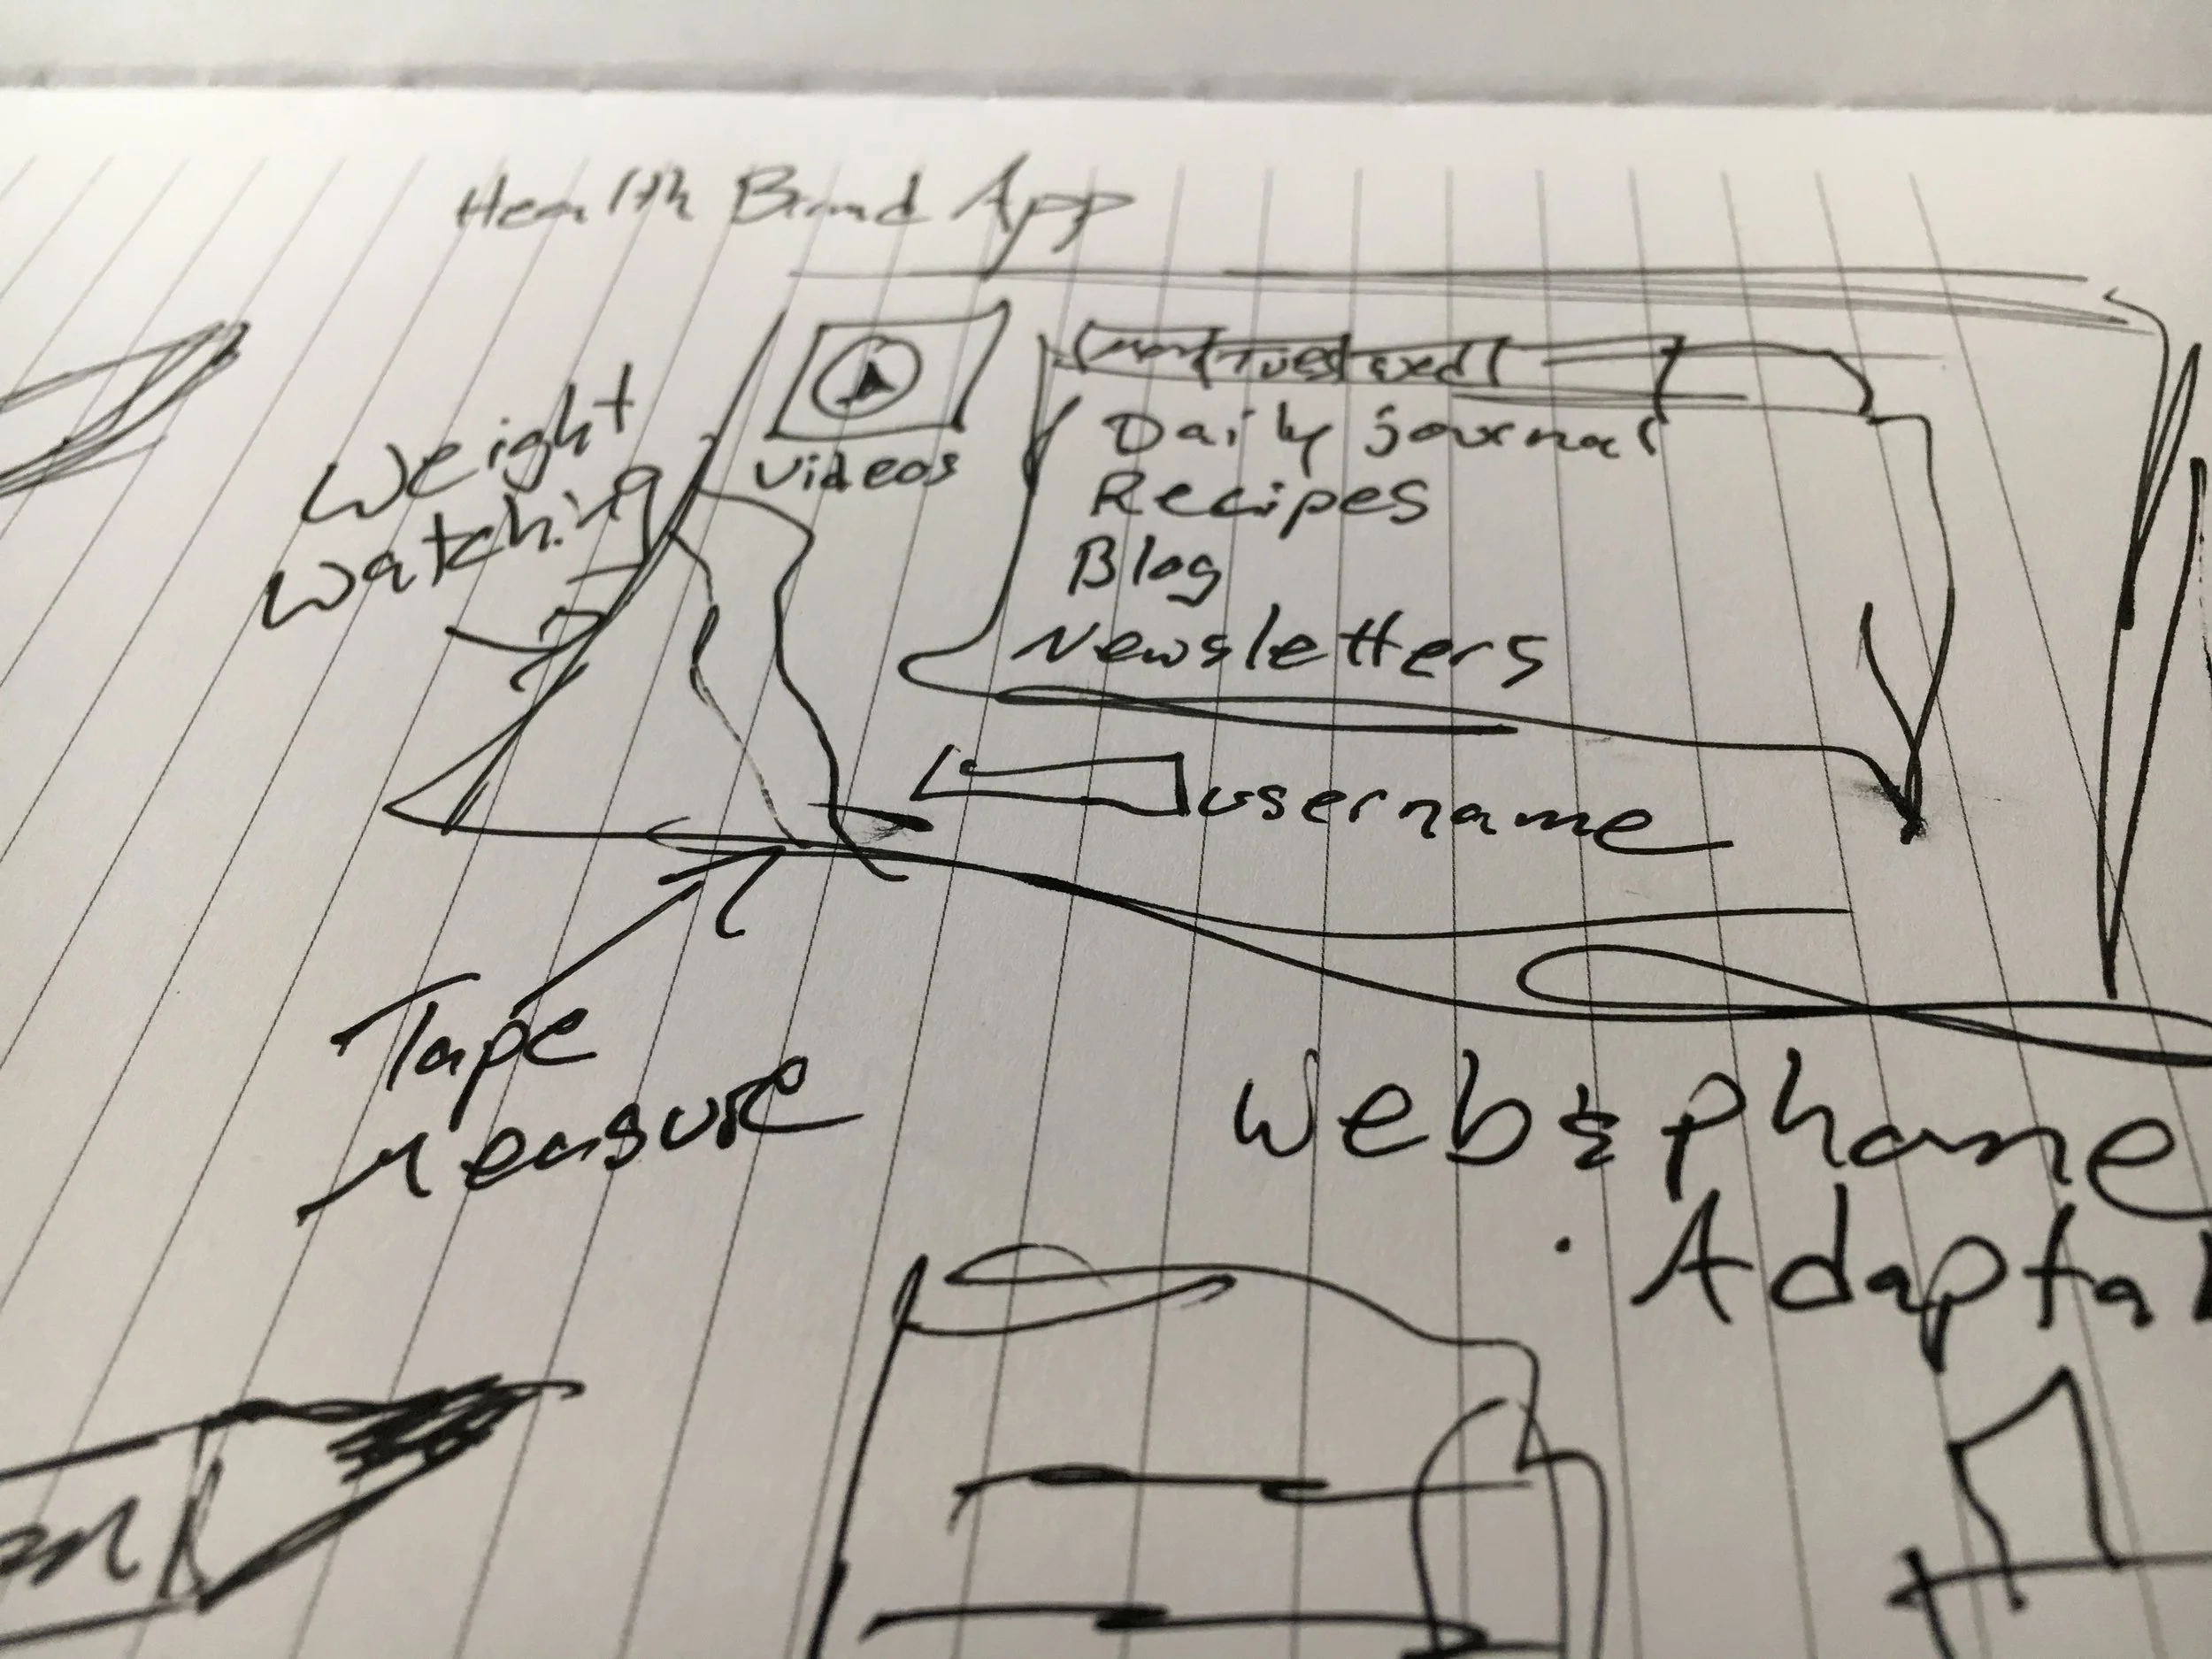 Health Brand App
Mon Tues Wed
Daily journal
Recipes
Blog
Newsletters
Videos
Weight
Watching
username
Tape
Measure
Web & Phone
Adapta